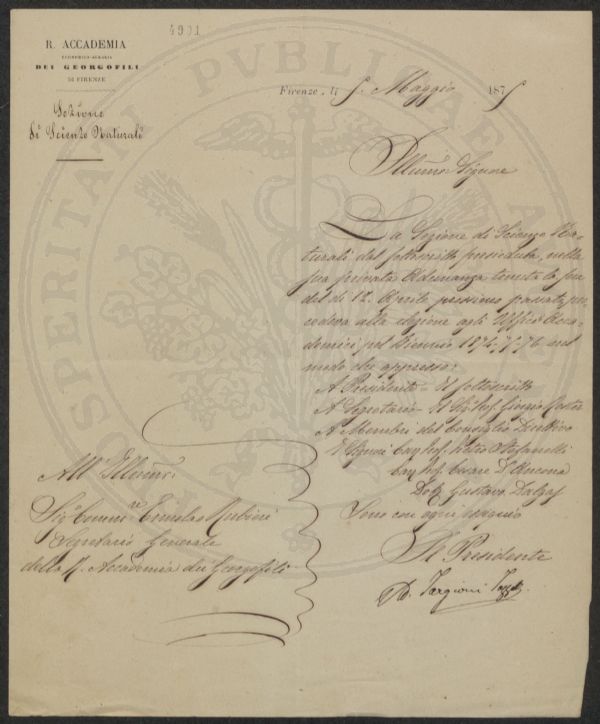 4901
R. ACCADEMIA
ECONOMICO-AGRARIA
DEI GEORGOFILI
DI FIRENZE
Sezione
di Scienze Naturali
Firenze, li 5. Maggio 1875
Illumo Signore
La Sezione di Scienze Na-
turali dal sottoscritto presieduta, nella
sua privata Adunanza tenuta
del dì 12. Aprile prossimo passato pro-
cedeva alla elezione agli Uffici Acca-
demici pel biennio 1874-75-76 nel
modo che appresso:
A Presidente Il sottoscritto
A Segretario Il Sig Prof. Giorgio Roster
A Membri del Consiglio Direttivo
I Signori Cav Prof. Pietro Stefanelli
Cav Prof. Cesare D'Ancona
Dott. Gustavo Dalgas
Sono con ogni ossequio
Il Presidente
Ad. Targioni Tozzetti
All' Illumo.
Sigr Commre
Segretario Generale
della R. Accademia dei Georgofili
PROSPERITATI PUBLICAE